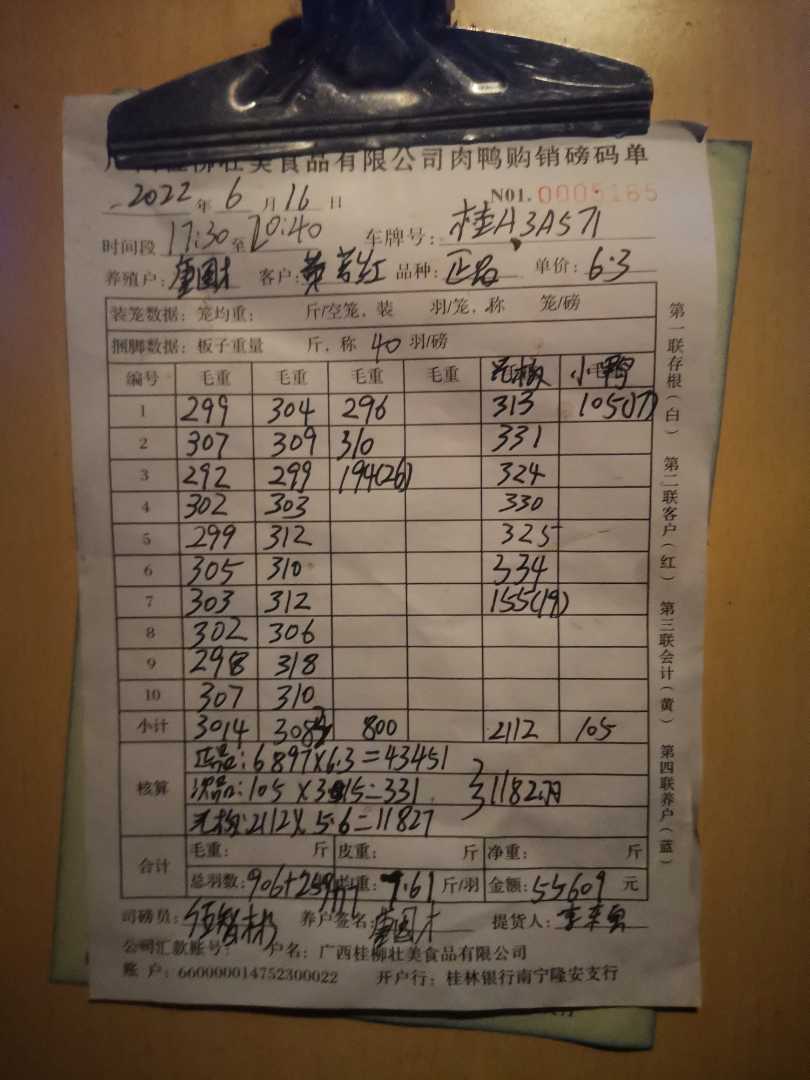 桂柳壮美食品有限公司肉鸭购销磅码单
2022 年 6 月 16 日 N01. 0005165
时间段 17:30 至 20:40 车牌号: 桂A3A571
养殖户: 唐国才 客户: 黄 红 品种: 正品 单价: 6.3
装笼数据: 笼均重: 斤/空笼, 装 羽/笼, 称 笼/磅
捆脚数据: 板子重量 斤, 称 40 羽/磅
编号 毛重 毛重 毛重 毛重 小鸭
1 299 304 296 313 105(17)
2 307 309 310 331
3 292 299 194(26) 324
4 302 303 330
5 299 312 325
6 305 310 334
7 303 312 155(19)
8 302 306
9 298 318
10 307 310
小计 3014 3083 800 2112 105
核算
正品: 6897×6.3=43451
次品: 105×3.15=331
2112×5.6=11827
1182羽
合计
毛重: 斤 皮重: 斤 净重: 斤
总羽数: 906+259+17 均重: 7.61 斤/羽 金额: 55609 元
司磅员: 养户签名: 唐国才 提货人: 李
公司汇款账号: 户名: 广西桂柳壮美食品有限公司
账 户: 660000014752300022 开户行: 桂林银行南宁隆安支行
第一联存根(白) 第二联客户(红) 第三联会计(黄) 第四联养户(蓝)